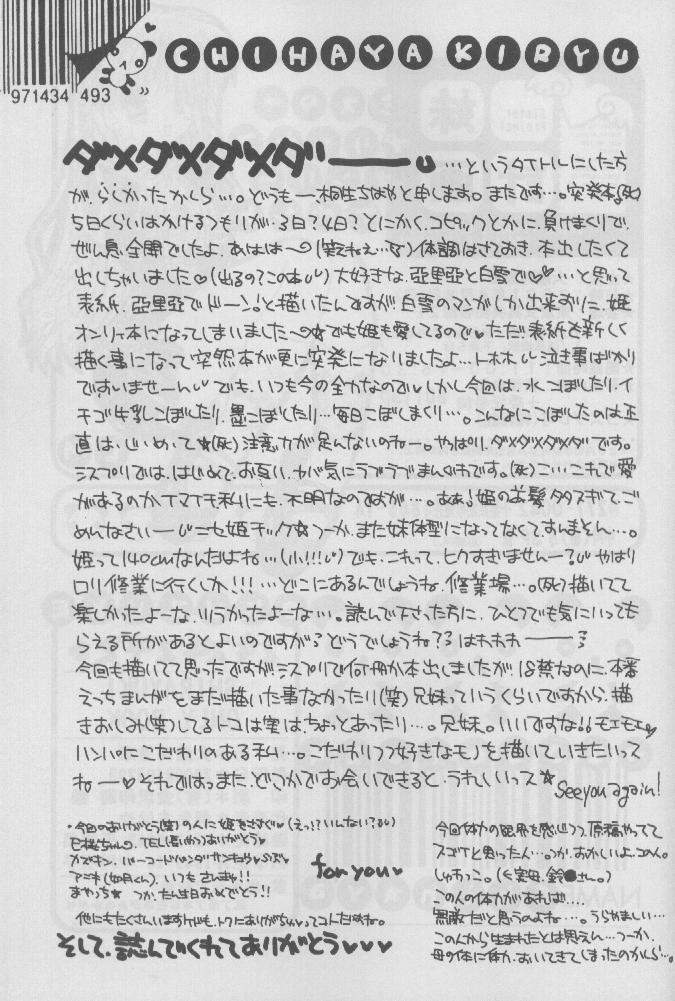 971434 493
CHIHAYA KIRYU
ダメダメダメダーー
…というタイトルにした方
が、らしかったかしら…。どうもー桐生ちはやと申します。またです…。突発本(死)
5日くらいはかけるつもりが、3日？4日？とにかく、コピックとかに、負けまくりで、
ぜんぜん息全開でしたよ、あはは〜(笑えねぇ…死)体調はさておき、本出したくて
出しちゃいました♡(出るの？この本)大好きな、亞里亞と白雪で♡♡…と思って
表紙、亞里亞でドーン!と描いたんですが、白雪のマンガしか出来ずに、姫
オンリー本になってしまいました〜☆でも姫も愛してるので♥ただ、表紙を新しく
描く事になって突然本が更に突発になりましたよ…トホホ 泣き事ばかり
ですいませーん でも、いつも今の全力なので♥しかし今回は、水こぼしたり、イ
チゴ牛乳こぼしたり、墨こぼしたり…毎日こぼしまくり…。こんなにこぼしたのは正
直は、じめて★(死)注意力が足んないのねー。やっぱり、ダメダメダメダです。
シスプリでは、はじめて、お互い、ヤバ気にラブラブまんがです。(死)こ…これで愛
があるのか、イマイチ私にも、不明なのですが…。ああ！姫のお髪タタスギて、ご
めんなさいー ニセ姫チック☆つーか、また妹体型になってなくて、すんません…。
姫って140cmなんだよね…(小!!!)でも、これって、ヒクすぎませんー？ やはり
ロリ修業に行くしか!!!…どこにあるんでしょうね、修業場…。(死)描いてて
楽しかったよーな、ツラかったよーな…。読んで下さった方に、ひとつでも気にいっても
らえる所があるとよいのですが？どうでしょうね？？はわわわーー
今回も描いてて思ったですがシスプリで何冊か本出しましたが、18禁なのに、本番
えっちまんがをまだ描いた事なかったり(笑)兄妹っていうくらいですから、描
きおしみ(笑)してるトコは実は、ちょっとあったり…。兄妹。いいですな!!モエモエ♥
ハンパにこだわりのある私…。こだわりつつ好きなモノを描いていきたいっス
ねー♥それではっまた、どこかでお会いできると、うれしいっス☆
See you again!
・今回のありがとう(笑)の人に姫をささぐ♥(えっ!?いんない？)
ありがとう♥
アニキ(如月くん)、いつもさんきゅ!!
まやっち★ つか、たん生日おめでとう!!
for you♥
他にもたくさんいますけども、トクにありがちゅ♥ってコトだわね。
そして、読んでくれてありがとう♥♥♥
今回体力の限界を感じつつ、原稿やってて
スゴイと思った人…つか、おかしいよ、この人。
しゅちっこ。(実母、鈴●さん。)
この人の体力があれば…
無敵だと思うのよね…。うらやましい…
この人から生まれたとは思えん…つーか、
母の体に体力、おいてきてしまったのかしら…。